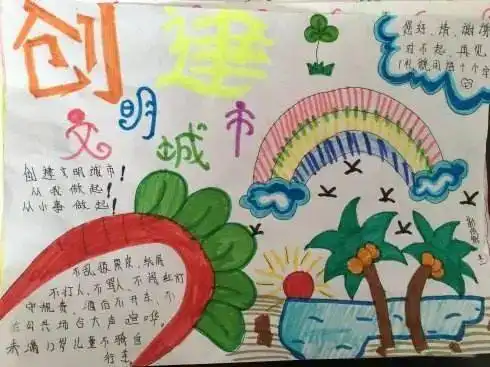 创建
文明城市
创建文明城市！
从我做起！
从小事做起！
您好、请、谢谢
对不起、再见、
不乱扔果皮、纸屑
不打人、不骂人、不闯红灯
守规责、酒后不开车、不
在公共场合大声喧哗，
未满12岁儿童不骑自
行车。